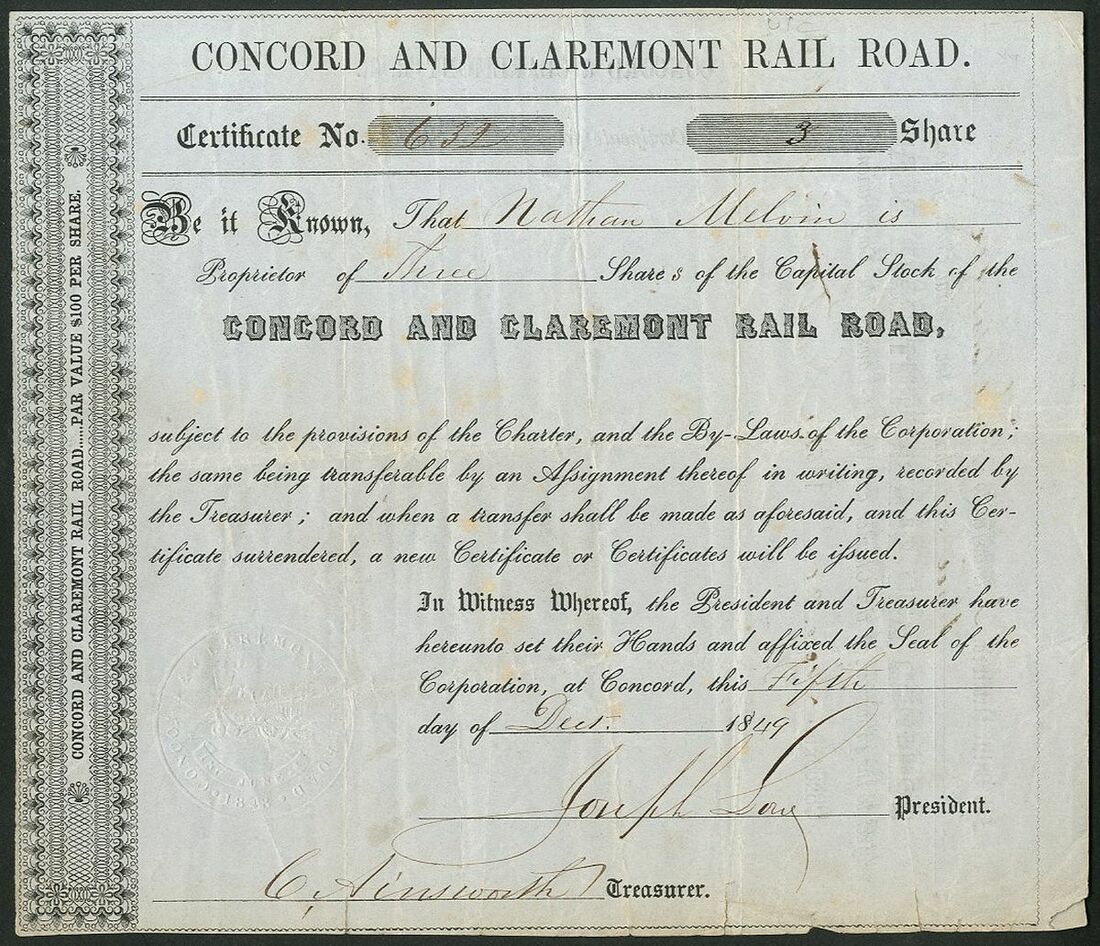 CONCORD AND CLAREMONT RAIL ROAD.
Certificate No. 632 3 Share
Be it Known, That Nathan Melvin is
Proprietor of Three Shares of the Capital Stock of the
CONCORD AND CLAREMONT RAIL ROAD,
subject to the provisions of the Charter, and the By-Laws of the Corporation;
the same being transferable by an Aſsignment thereof in writing, recorded by
the Treasurer; and when a transfer shall be made as aforesaid, and this Cer-
tificate surrendered, a new Certificate or Certificates will be iſsued.
In Witness Whereof, the President and Treasurer have
hereunto set their Hands and affixed the Seal of the
Corporation, at Concord, this Fifth
day of Decr. 1849
Joseph Low President.
C. Ainsworth Treasurer.
CONCORD AND CLAREMONT RAIL ROAD.....PAR VALUE $100 PER SHARE.
CONCORD AND CLAREMONT RAIL ROAD.
1848